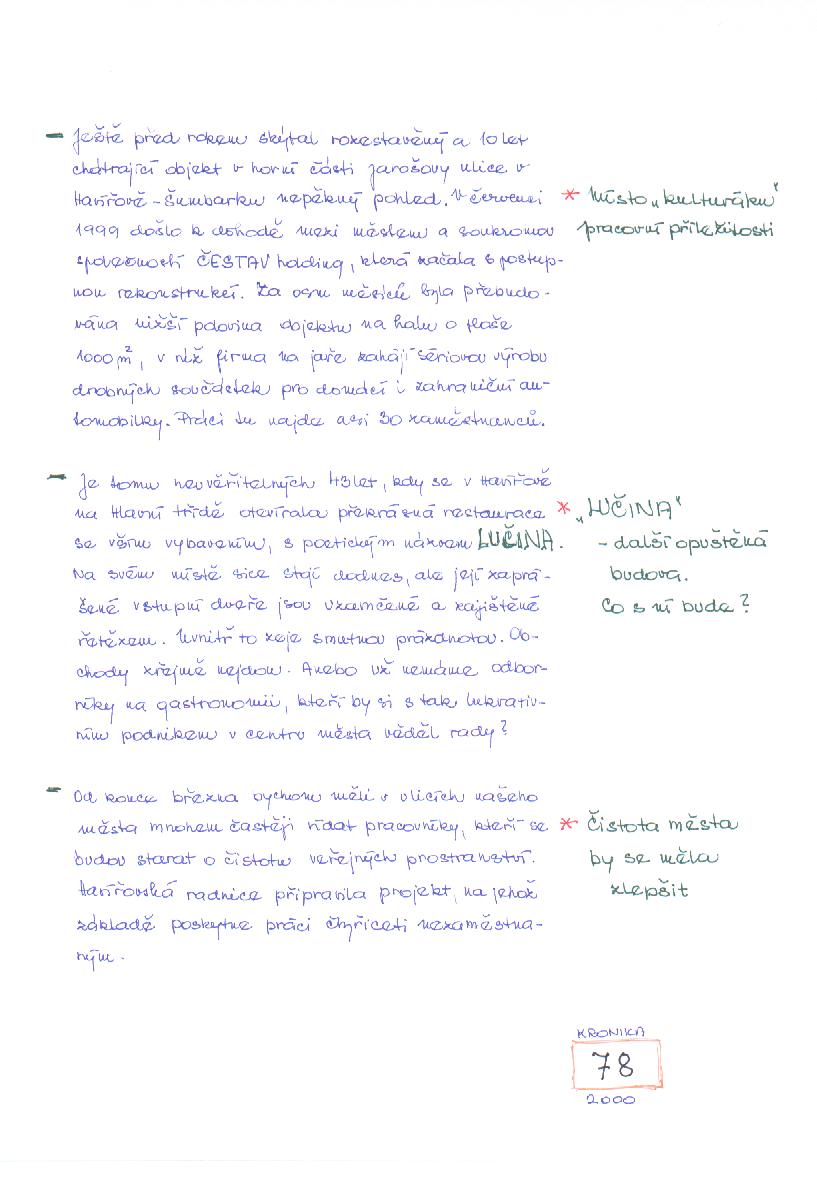 – Ještě před rokem skýtal rozestavěný a 10 let
chátrající objekt v horní části Jarošovy ulice v
Havířově - Šumbarku nepěkný pohled. V červenci
1999 došlo k dohodě mezi městem a soukromou
společností ČESTAV holding, která začala s postup-
nou rekonstrukcí. Za osm měsíců byla přebudo-
vána nižší polovina objektu na halu o ploše
1000 m², v níž firma na jaře zahájí sériovou výrobu
drobných součástek pro domácí i zahraniční au-
tomobilky. Práci tu najde asi 30 zaměstnanců.
* Místo „kulturáku“
pracovní příležitosti
– Je tomu neuvěřitelných 43 let, kdy se v Havířově
na Hlavní třídě otevírala překrásná restaurace
se vším vybavením, s poetickým názvem LUČINA.
Na svém místě sice stojí dodnes, ale její zaprá-
šené vstupní dveře jsou uzamčené a zajištěné
řetězem. Uvnitř to zeje smutnou prázdnotou. Ob-
chody zřejmě nejdou. Anebo už nemáme odbor-
níky na gastronomii, kteří by si s tak lukrativ-
ním podnikem v centru města věděl rady?
* „LUČINA“
- další opuštěná
budova.
Co s ní bude?
– Od konce března bychom měli v ulicích našeho
města mnohem častěji vídat pracovníky, kteří se
budou starat o čistotu veřejných prostranství.
Havířovská radnice připravila projekt, na jehož
základě poskytne práci čtyřiceti nezaměstna-
ným.
* Čistota města
by se měla
zlepšit
KRONIKA
78
2000